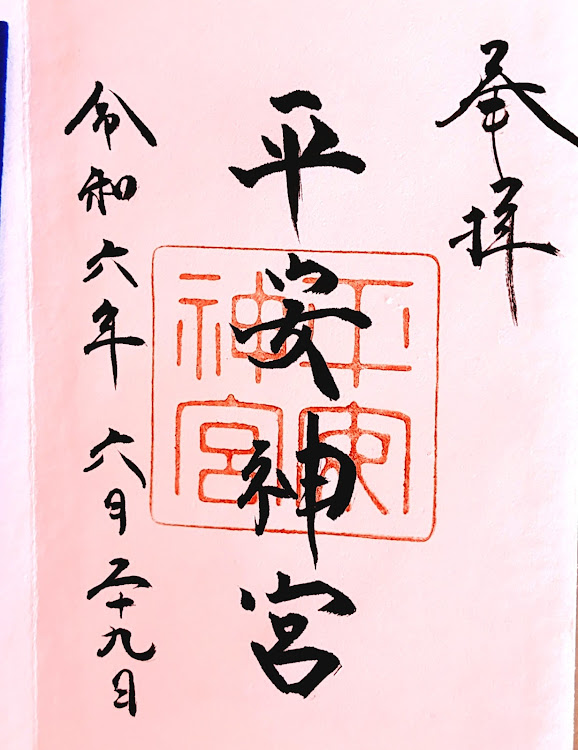 奉拝
平安神宮
平安神宮
令和六年 六月二十九日